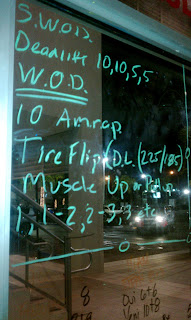 S.W.O.D.
Deadlift 10,10,5,5
W.O.D.
10 Amrap
Tire Flip/D.L. (225/185)
Muscle Up or
1,1-2,2-3,3 etc
8